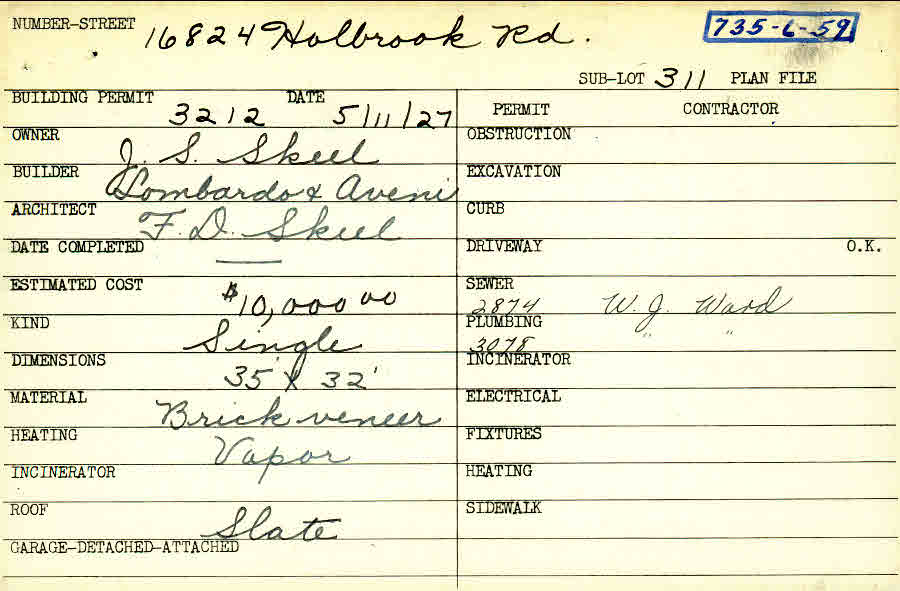 NUMBER-STREET 16824 Holbrook Rd. 735-6-59
SUB-LOT 311 PLAN FILE
BUILDING PERMIT 3212 DATE 5/11/27
PERMIT CONTRACTOR
OWNER J. S. Skeel
OBSTRUCTION
BUILDER Lombardo & Aveni
EXCAVATION
ARCHITECT F. D. Skeel
CURB
DATE COMPLETED —
DRIVEWAY O.K.
ESTIMATED COST $10,000 00
SEWER 2874 W. J. Ward
KIND Single
PLUMBING 3078 " "
DIMENSIONS 35 X 32'
INCINERATOR
MATERIAL Brick veneer
ELECTRICAL
HEATING Vapor
FIXTURES
INCINERATOR
HEATING
ROOF Slate
SIDEWALK
GARAGE-DETACHED-ATTACHED